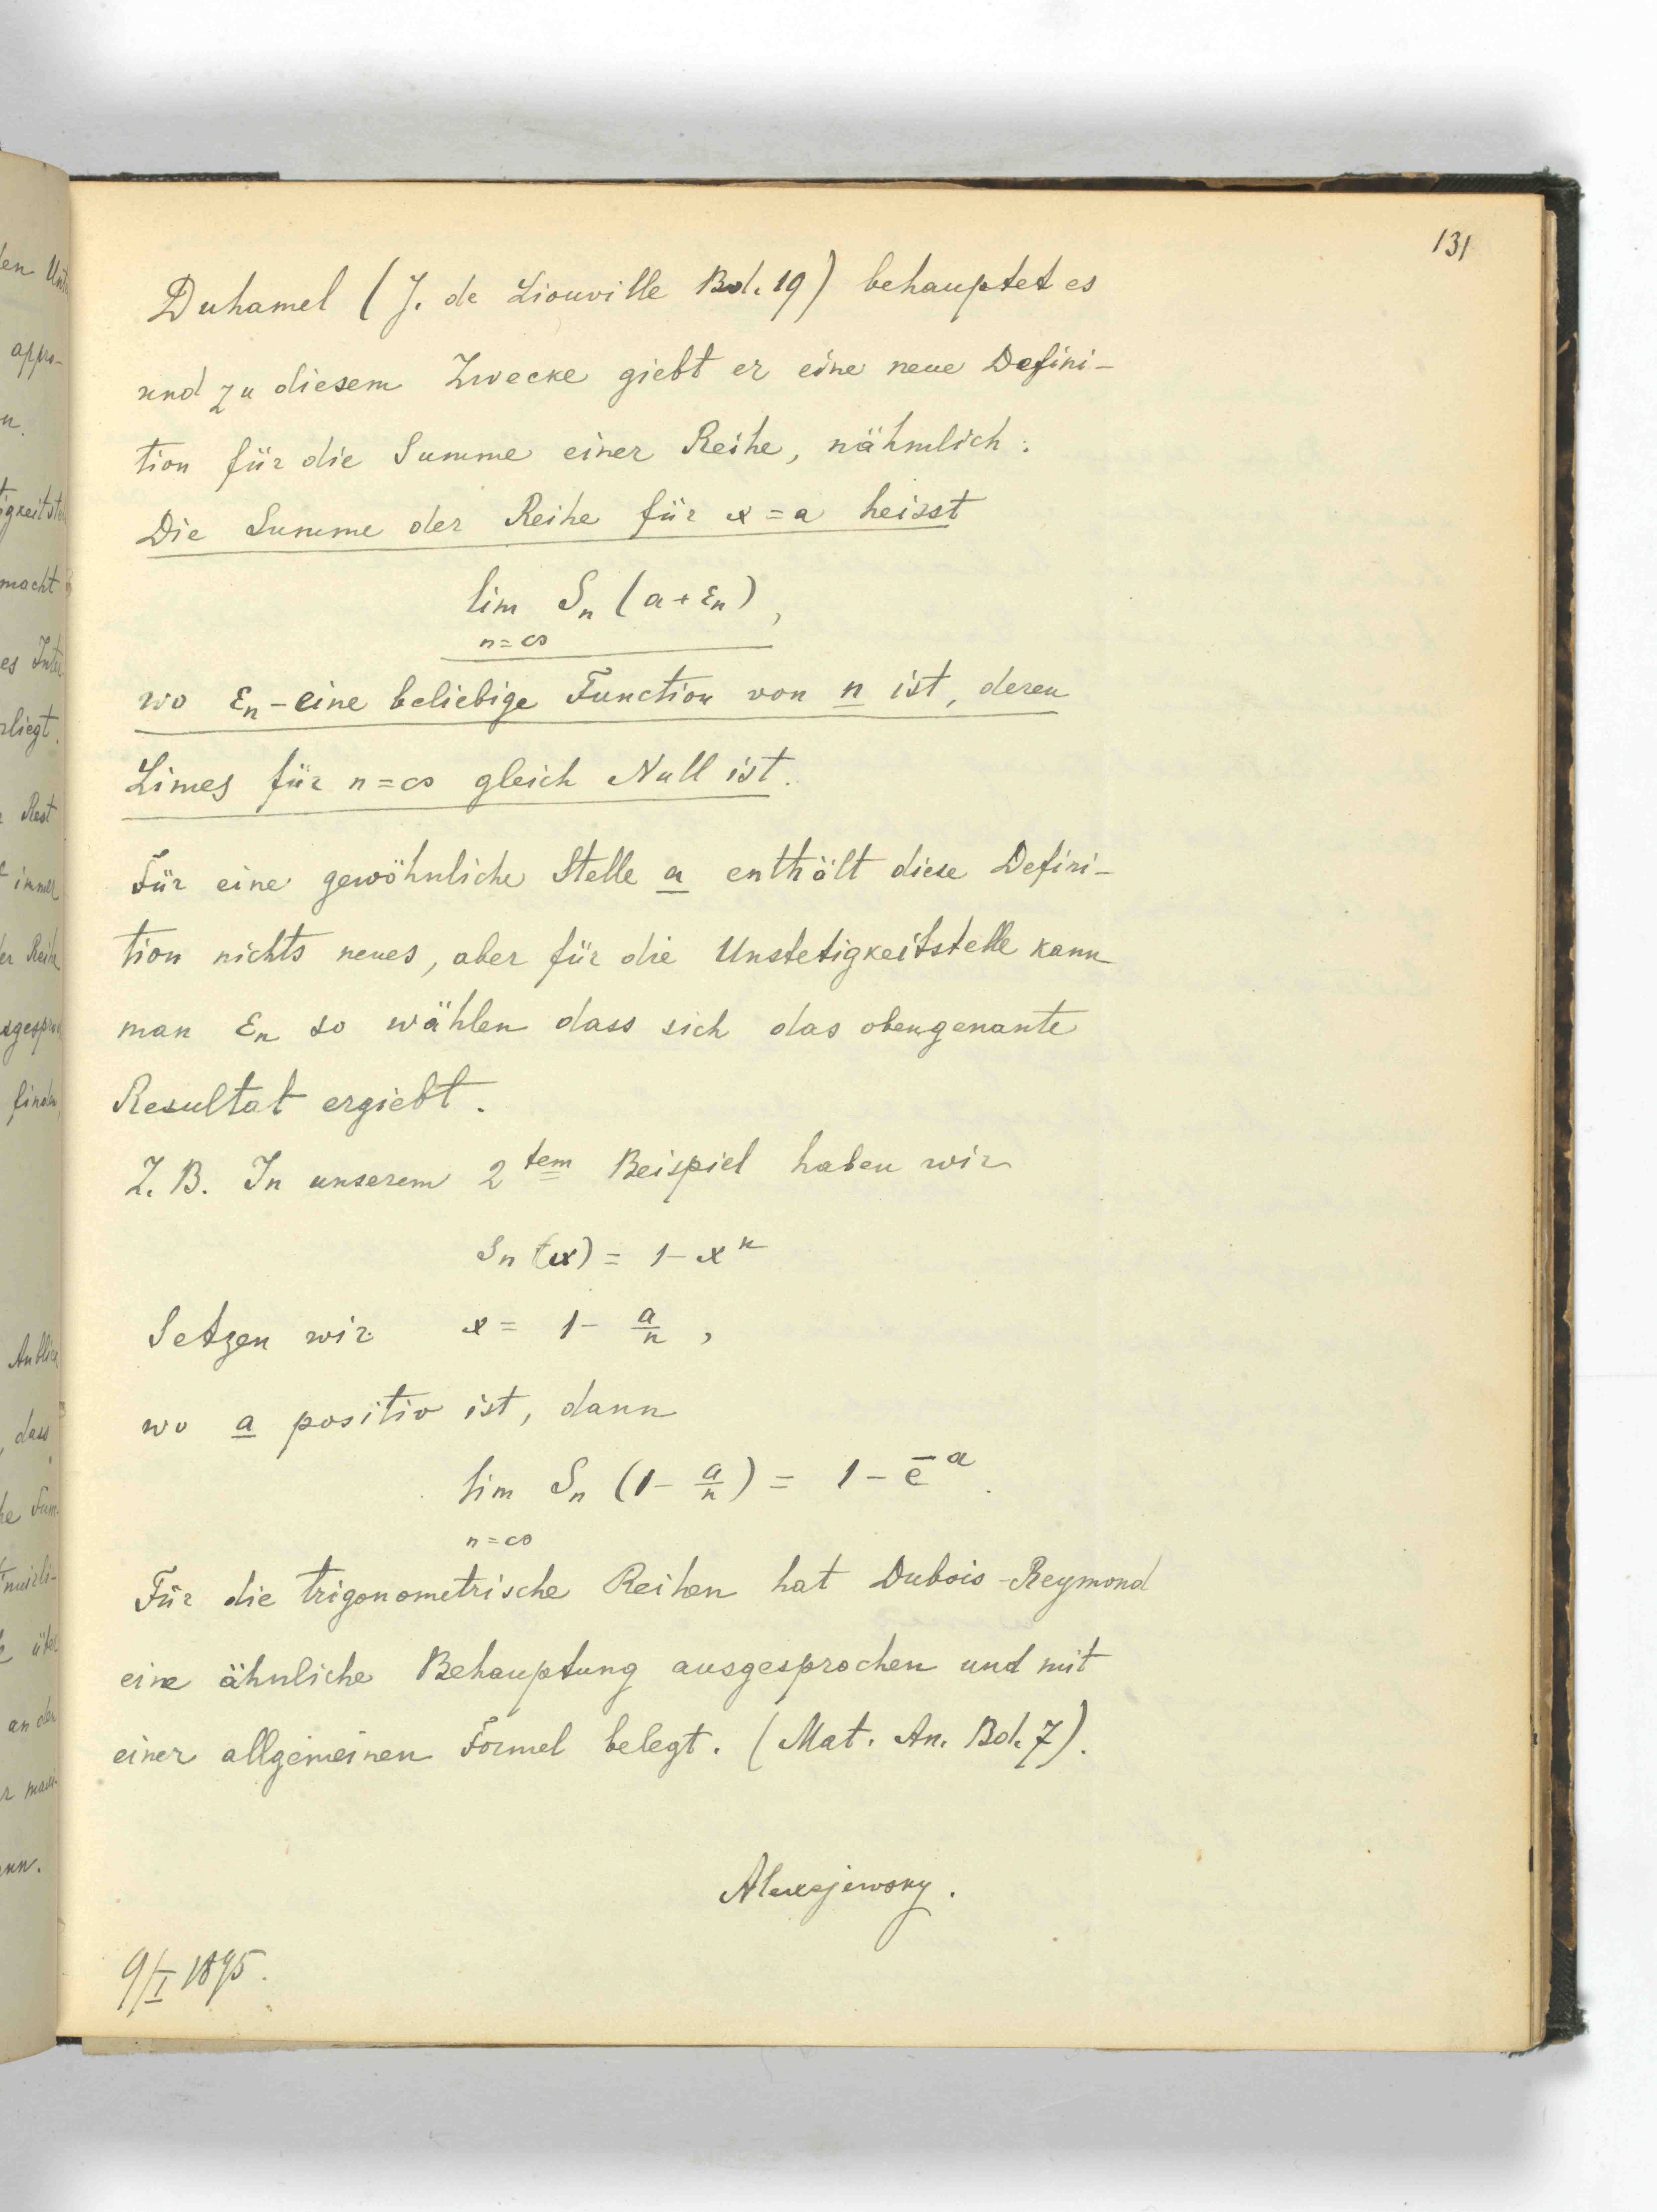 131
Duhamel (J. de Liouville Bd. 19) behauptet es
und zu diesem Zwecke giebt er eine neue Defini-
tion für die Summe einer Reihe, nähmlich:
Die Summe der Reihe für x = a heisst
lim Sn (a + εn),
n = ∞
wo εn - eine beliebige Function von n ist, deren
Limes für n = ∞ gleich Null ist.
Für eine gewöhnliche Stelle a enthält diese Defini-
tion nichts neues, aber für die Unstetigkeitstelle kann
man εn so wählen dass sich das obengenante
Resultat ergiebt.
Z. B. In unserem 2tem Beispiel haben wir
Sn (x) = 1 - x^n
Setzen wir x = 1 - a/n,
wo a positiv ist, dann
lim Sn (1 - a/n) = 1 - e^-a.
n = ∞
Für die trigonometrische Reihen hat Dubois-Reymond
eine ähnliche Behauptung ausgesprochen und mit
einer allgemeinen Formel belegt. (Mat. An. Bd. 7).
Alexejewsky.
9/I 1895.
en
appro-
n.
macht
es
rliegt.
Rest
immer
er Reihe
finden,
dass
an der